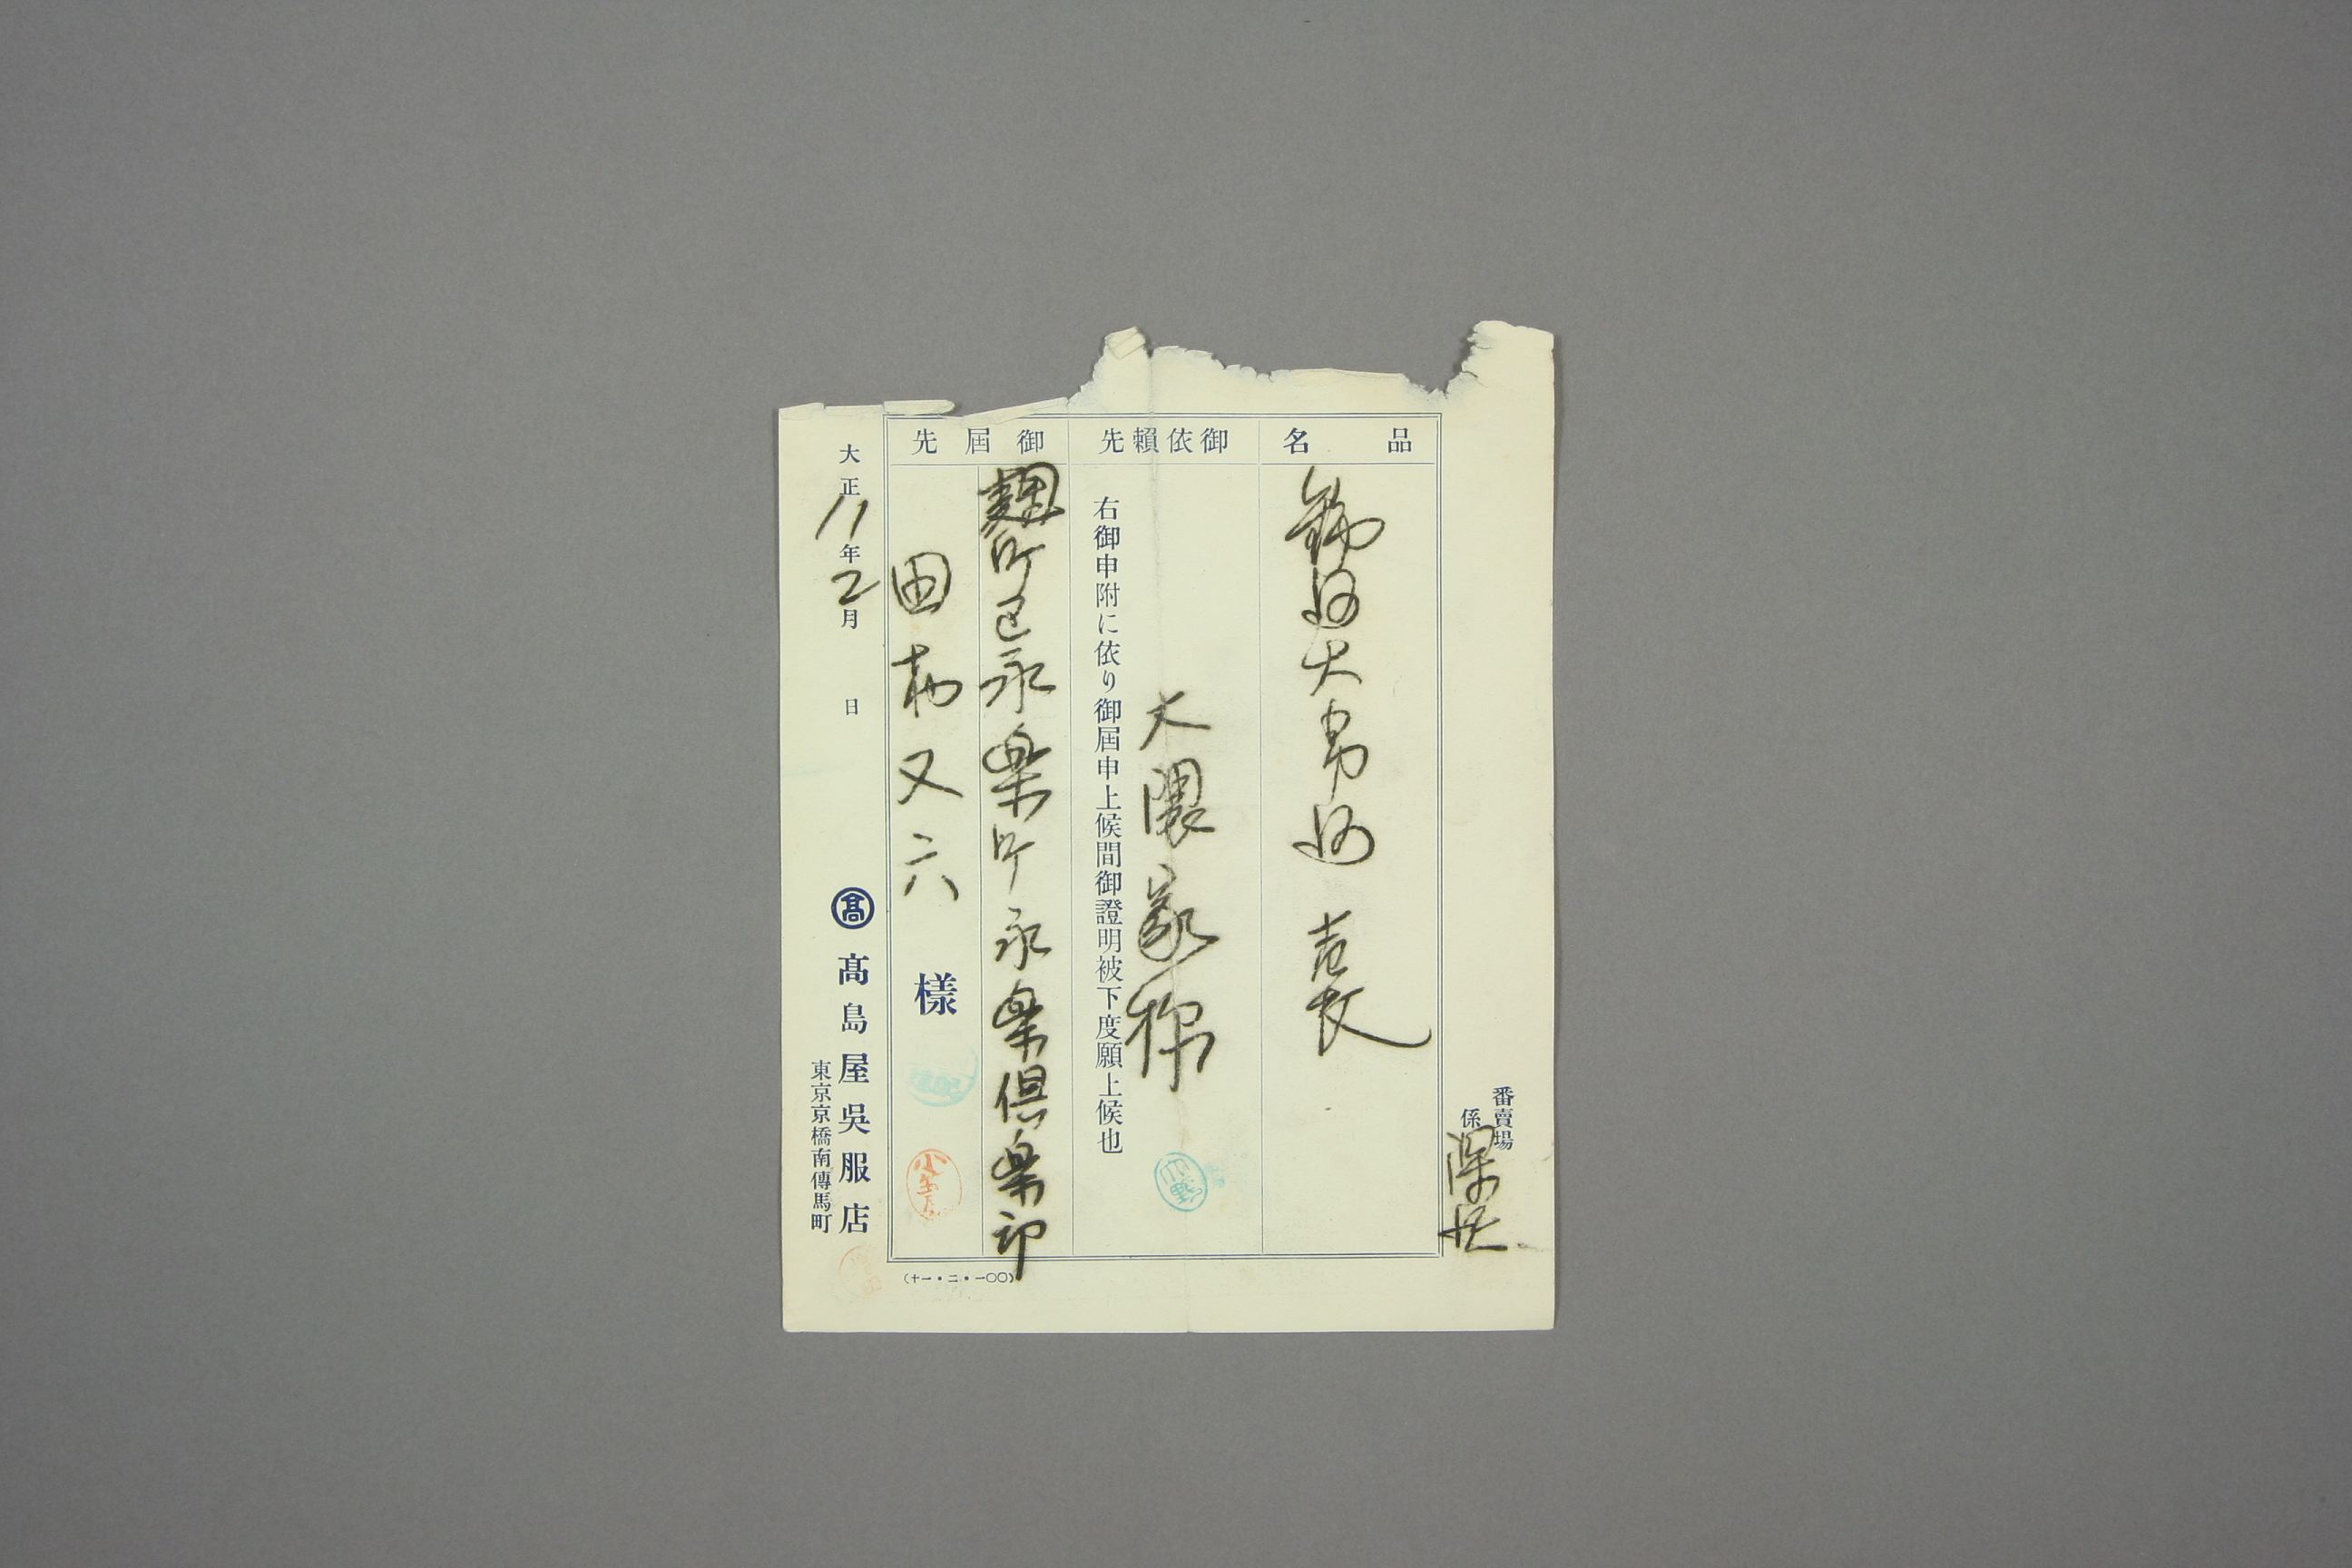 番賣場
係
品名
大
御依賴先
大隈家様
右御申附に依り御屆申上候間御證明被下度願上候也
御屆先
麹町区永楽町永楽倶楽部
田柄又六
樣
大正11年2月 日
髙 髙島屋吳服店
東京京橋南傳馬町
(十一・二・一〇〇)
小野